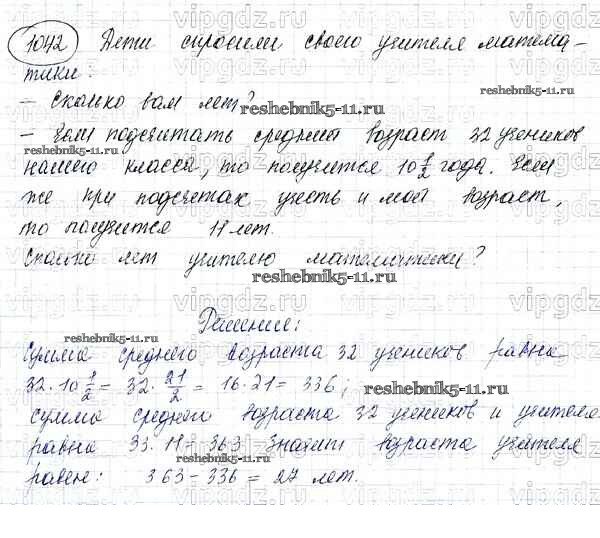 1042 Дети спросили своего учителя матема-
тики:
- Сколько вам лет?
- Если подсчитать средний возраст 32 учеников
нашего класса, то получится 10 1/2 года. Если
же при подсчетах учесть и мой возраст,
то получится 11 лет.
Сколько лет учителю математики?
Решение:
Сумма среднего возраста 32 учеников равна
32·10 1/2 = 32·21/2 = 16·21 = 336;
сумма средней возраста 32 учеников и учителя
равна 33·11=363 Значит возраста учителя
равен: 363-336=27 лет.
vipgdz.ru
reshebnik5-11.ru